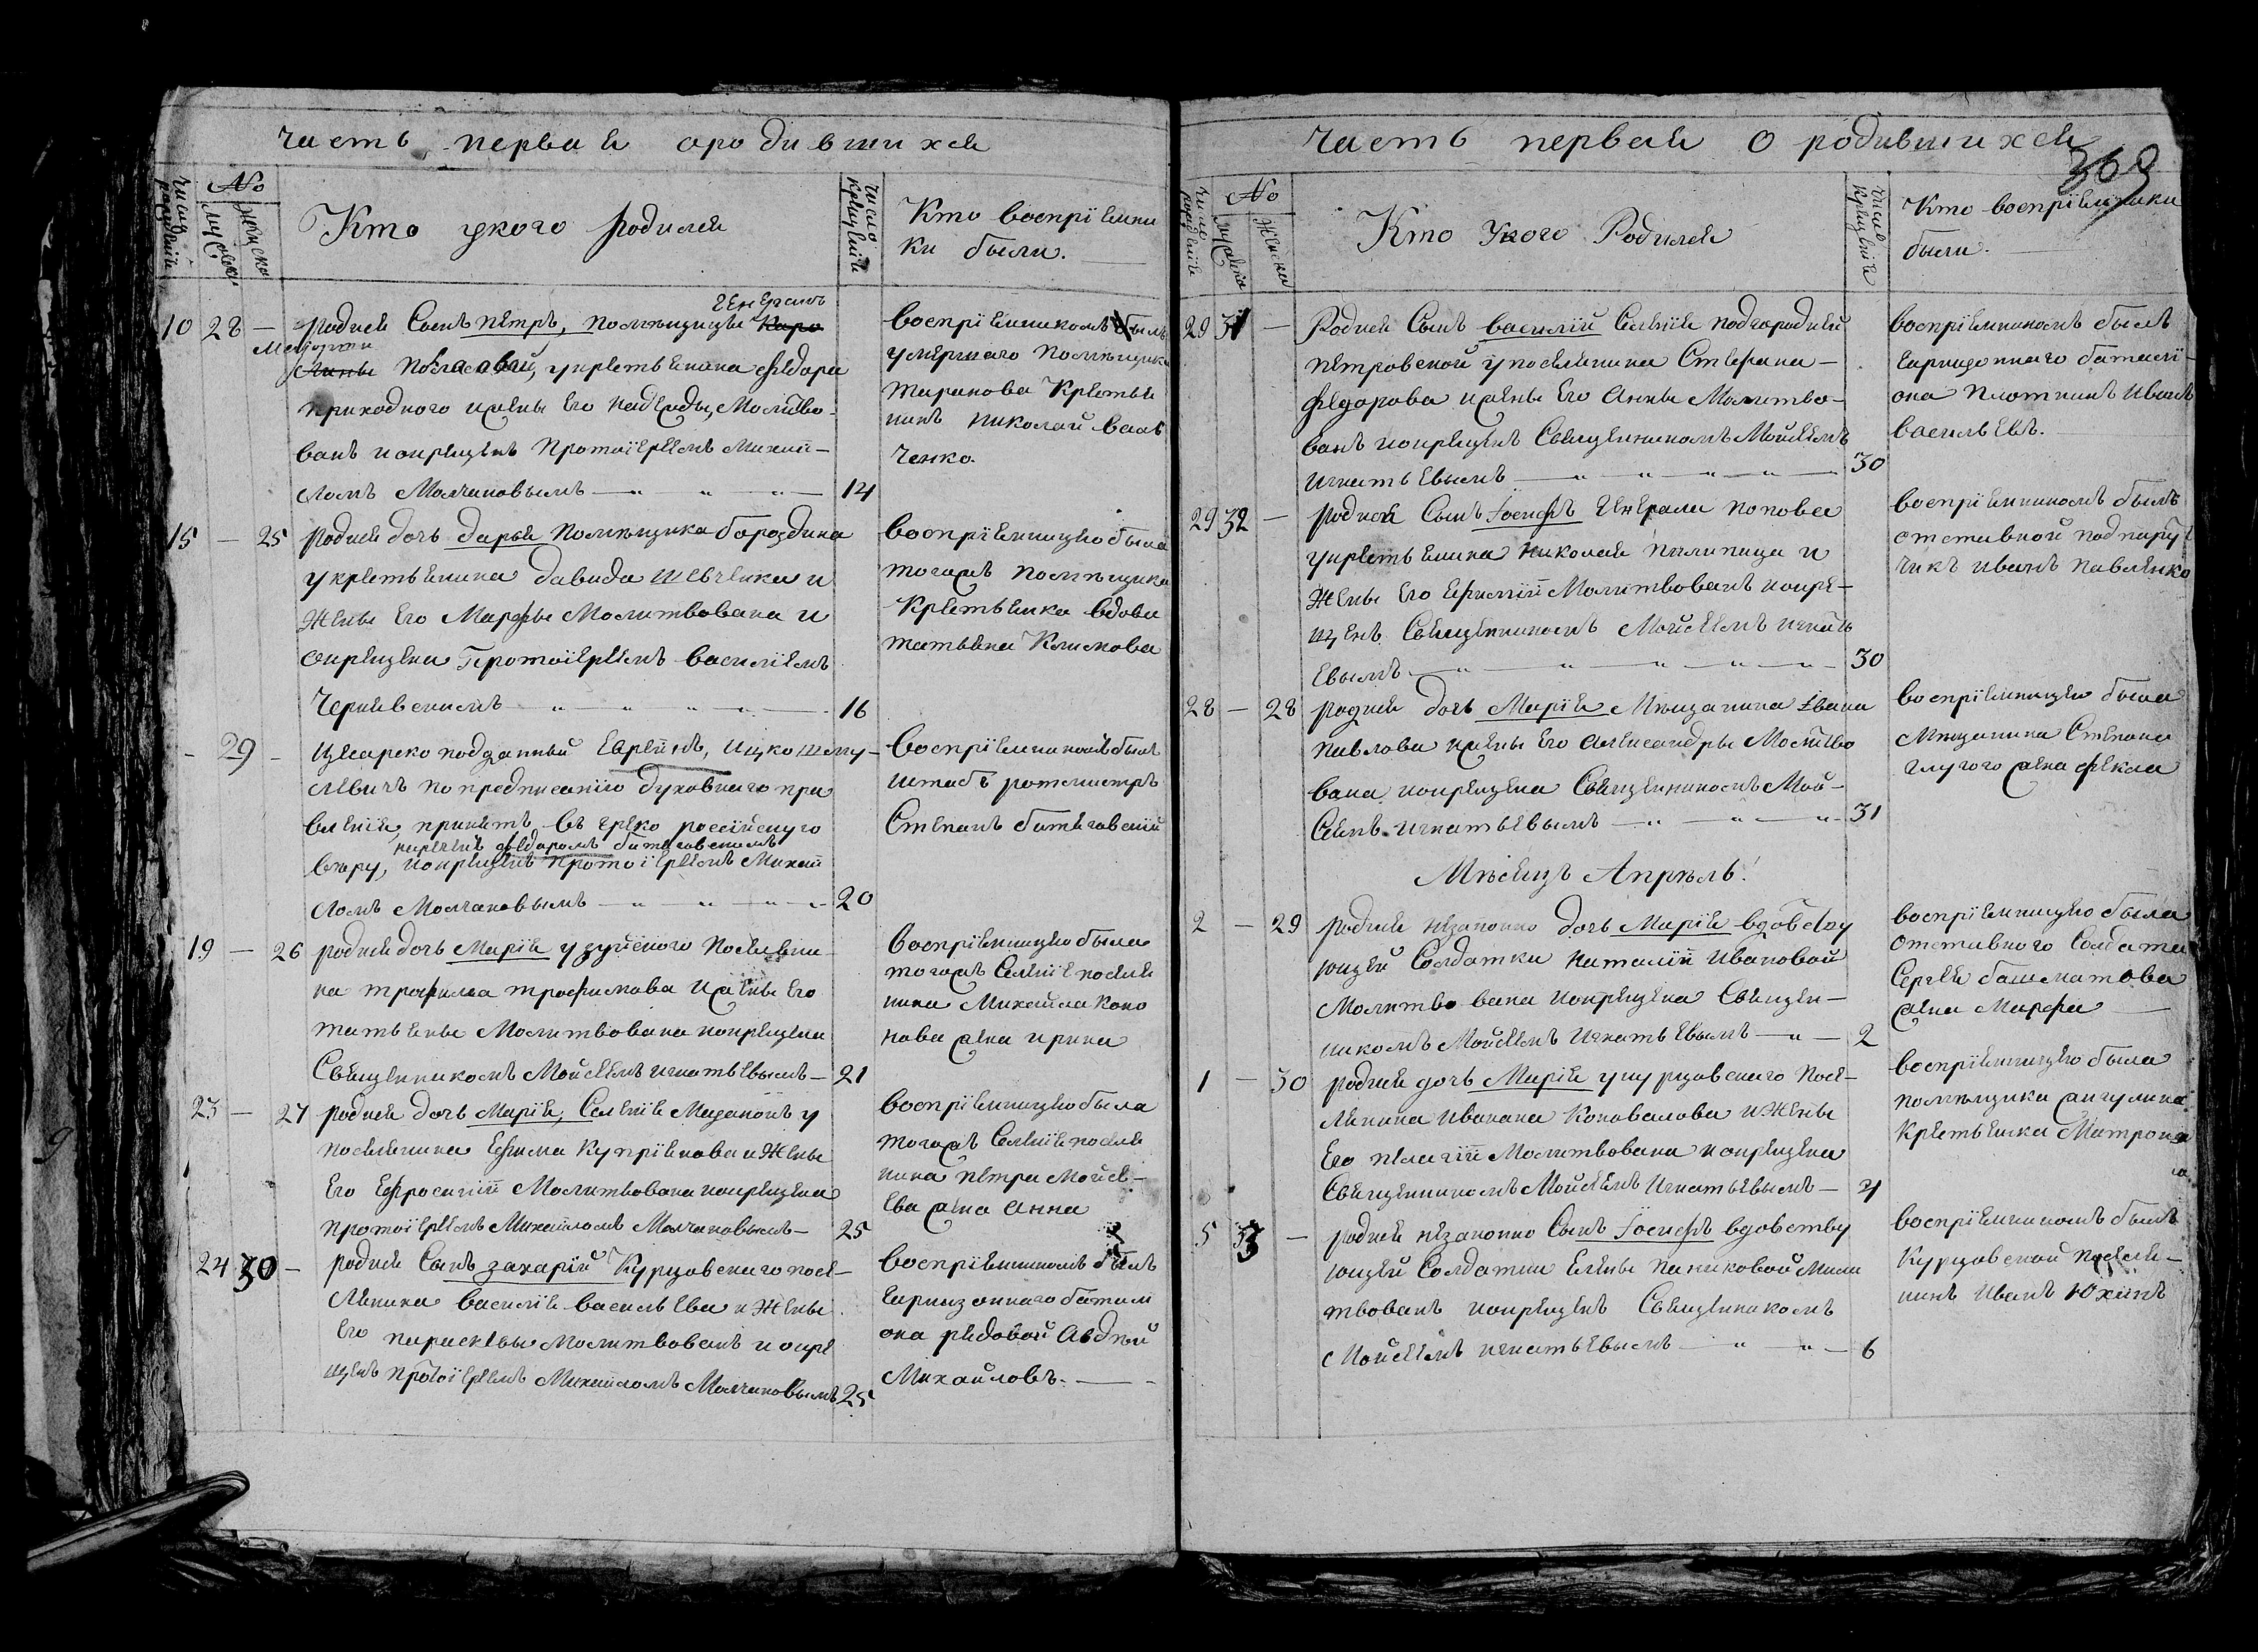 часть первая о родившихся
число рожденiя
№
мужска
женска
Кто укого родился
число крещенiя
Кто воспрiемни
ки были.
10 28 — родися Сынъ петръ, помѣщицы Каро
генерали
Маiорши
лины по ей, укрестьянина федора
приходного ижены его надежды, Молитво-
ванъ иокрещенъ Протоiереемъ Михай-
ломъ Молчановымъ — 14
воспрiемникомъ былъ
умершаго помѣщика
таранова Крестья
нинъ николай
ченко.
15 — 25 родися дочь дарья помѣщика бороздина
укрестьянина давида шевченка и
жены его Марфы Молитвована и
окрещена Протоiереемъ василiемъ
Чернявскимъ — 16
воспрiемницею была
тогожъ помѣщика
Крестьянка вдова
татьяна Климова
— 29 — Цесареко подданный Евреинъ, Ицко шму-
левичъ по предписанiю духовнаго пра
вленiя, принятъ въ греко россiйскую
нареченъ федоромъ
вѣру, иокрещенъ протоiереемъ Михай
ломъ Молчановымъ — 20
воспрiемникомъ былъ
штабъ ротмистръ
Степанъ
19 — 26 родися дочь Марiя узуйского поселяни
на трофима трофимова ижены его
татьяны Молитвована иокрещена
Священникомъ Мойсеемъ игнатьевымъ — 21
воспрiемницею была
тогожъ Селенiя поселя
нина Михайла коно
нова жена ирина
23 — 27 родися дочь Марiя, Селенiя Мазанокъ у
поселянина Ефима Купрiянова и жены
Его Ефросинiи Молитвована иокрещена
протоiереемъ Михайломъ Молчановымъ — 25
воспрiемницею была
тогожъ Селенiя поселя
нина петра Мойсе-
ева жена анна
24 30 — родися Сынъ захарiй Курцовскаго посе-
лянина василiя васильева и жены
Его параскевы Молитвованъ и окре
щенъ протоiереемъ Михайломъ Молчановымъ 25
воспрiемникомъ былъ
гарнизоннаго батали
она рядовой авдѣй
Михайловъ. —
часть первая о родившихся
369
число рожденiя
№
мужска
женска
Кто Укого Родился
число крещенiя
Кто воспрiемники
были. —
29 31 — Родися Сынъ василiй Селенiя подгородней
петровской упоселянина Стефана —
федорова ижены Его анны Молитво-
ванъ иокрещенъ Священникомъ Мойсеемъ
игнатьевымъ — 30
воспрiемникомъ былъ
гарнизоннаго батали-
она плотникъ иванъ
васильевъ.
29 32 — родися Сынъ Iосифъ генерала попова
укрестьянина николая и
жены Его ефимiи Молитвованъ иокре-
щенъ Священникомъ Мойсеемъ игнать
евымъ — 30
воспрiемникомъ былъ
отставной подпару
чикъ иванъ павленко
28 — 28 родися дочь Марiя Мѣщанина Iвана
павлова ижены Его александры Молитво
вана иокрещена Священникомъ Мой-
сеемъ игнатьевымъ — 31
воспрiемницею была
Мѣщанина Степана
глухого жена фекла
Мѣсяцъ Апрѣль!
2 — 29 родися незаконно дочь Марiя вдовству
ющей Солдатки наталiи ивановой
Молитвована иокрещена Священ-
никомъ Мойсеемъ игнатьевымъ — 2
воспрiемницею была
отставного Солдата
Сергея башматова
жена Марфа —
1 — 30 родися дочь Марiя укурцовскаго посе-
лянина ивана коновалова и жены
Его пелагiи Молитвована иокрещена
Священникомъ Мойсеемъ игнатьевымъ — 4
воспрiемницею была
помѣщика
Крестьянка Матрона
5 33 — родися незаконно Сынъ Iосифъ вдовству
ющей Солдатки Елены паниковой Моли
твованъ иокрещенъ Священникомъ
Мойсеемъ игнатьевымъ — 6
воспрiемникомъ былъ
Курцовской поселя-
нинъ иванъ Юхинъ